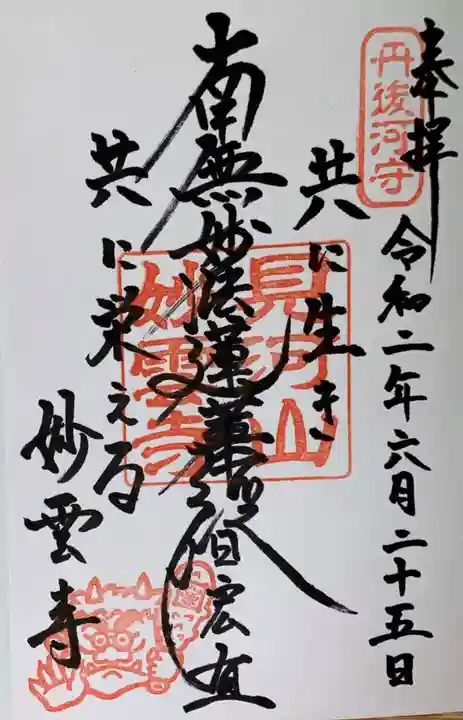 奉拝
丹後河守
令和二年六月二十五日
共に生き
南無妙法蓮華経
共に栄える
見河山
妙雲寺
妙雲寺